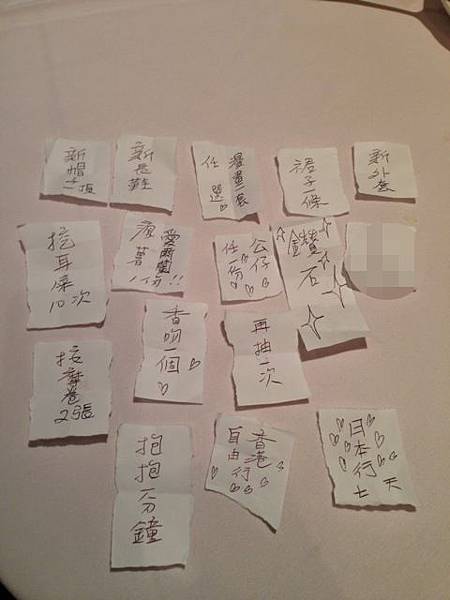 新帽
頂
新長
漫畫一套
任選
裙子一條
新外套
挖耳屎10次
愛爾蘭
薯1份!!
公仔
任一份
鑽石
香吻一個
再抽一次
按摩卷2張
抱抱一分鐘
香港
自由行
日本行七天